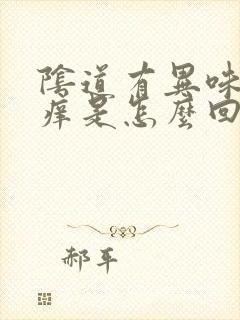 陰道有異味
痒是怎麼回
郝平